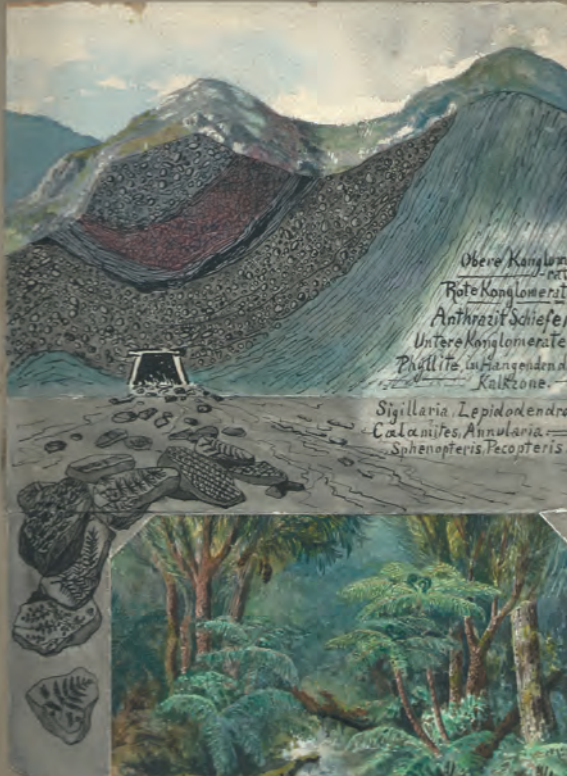 Obere Konglom
rat
Rote Konglomerat
Anthrazit Schiefer
Untere Konglomerate
Phyllite, im Hangenden d
Kalkzone.
Sigillaria, Lepidodendro
Calamites, Annularia
Sphenopteris, Pecopteris